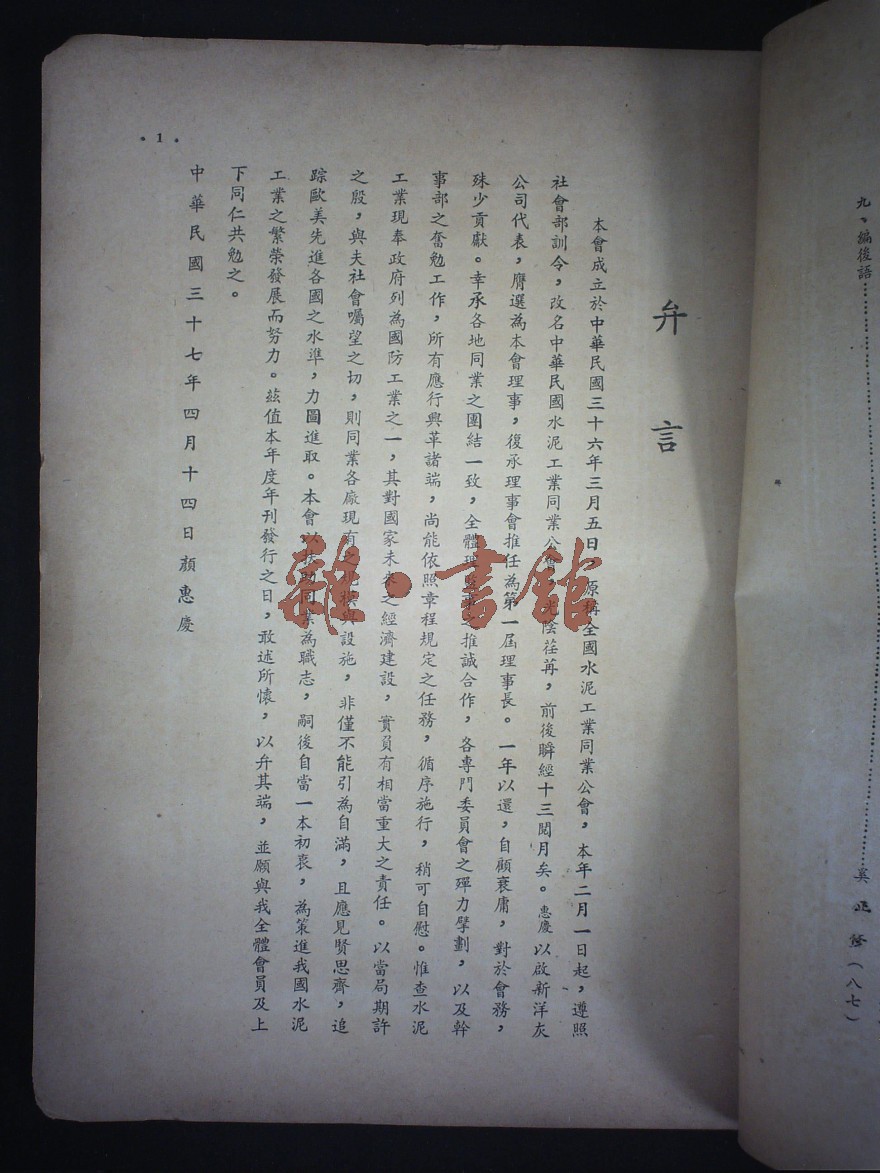 弁言
本會成立於中華民國三十六年三月五日，原稱全國水泥工業同業公會，本年二月一日起，遵照
社會部訓令，改名中華民國水泥工業同業公會，光陰荏苒，前後瞬經十三閱月矣。惠慶以啟新洋灰
公司代表，膺選為本會理事，復承理事會推任為第一屆理事長。一年以還，自顧衰庸，對於會務，
殊少貢獻。幸承各地同業之團結一致，全體理監事之推誠合作，各專門委員會之殫力擘劃，以及幹
事部之奮勉工作，所有應行興革諸端，尚能依照章程規定之任務，循序施行，稍可自慰。惟查水泥
工業現奉政府列為國防工業之一，其對國家未來之經濟建設，實負有相當重大之責任。以當局期許
之殷，與夫社會囑望之切，則同業各廠現有之規模與設施，非僅不能引為自滿，且應見賢思齊，追
踪歐美先進各國之水準，力圖進取。本會以同業為職志，嗣後自當一本初衷，為策進我國水泥
工業之繁榮發展而努力。茲值本年度年刊發行之日，敢述所懷，以弁其端，並願與我全體會員及上
下同仁共勉之。
中華民國三十七年四月十四日顏惠慶
•1•
九、編後語……吳正修（八七）
雜·書館